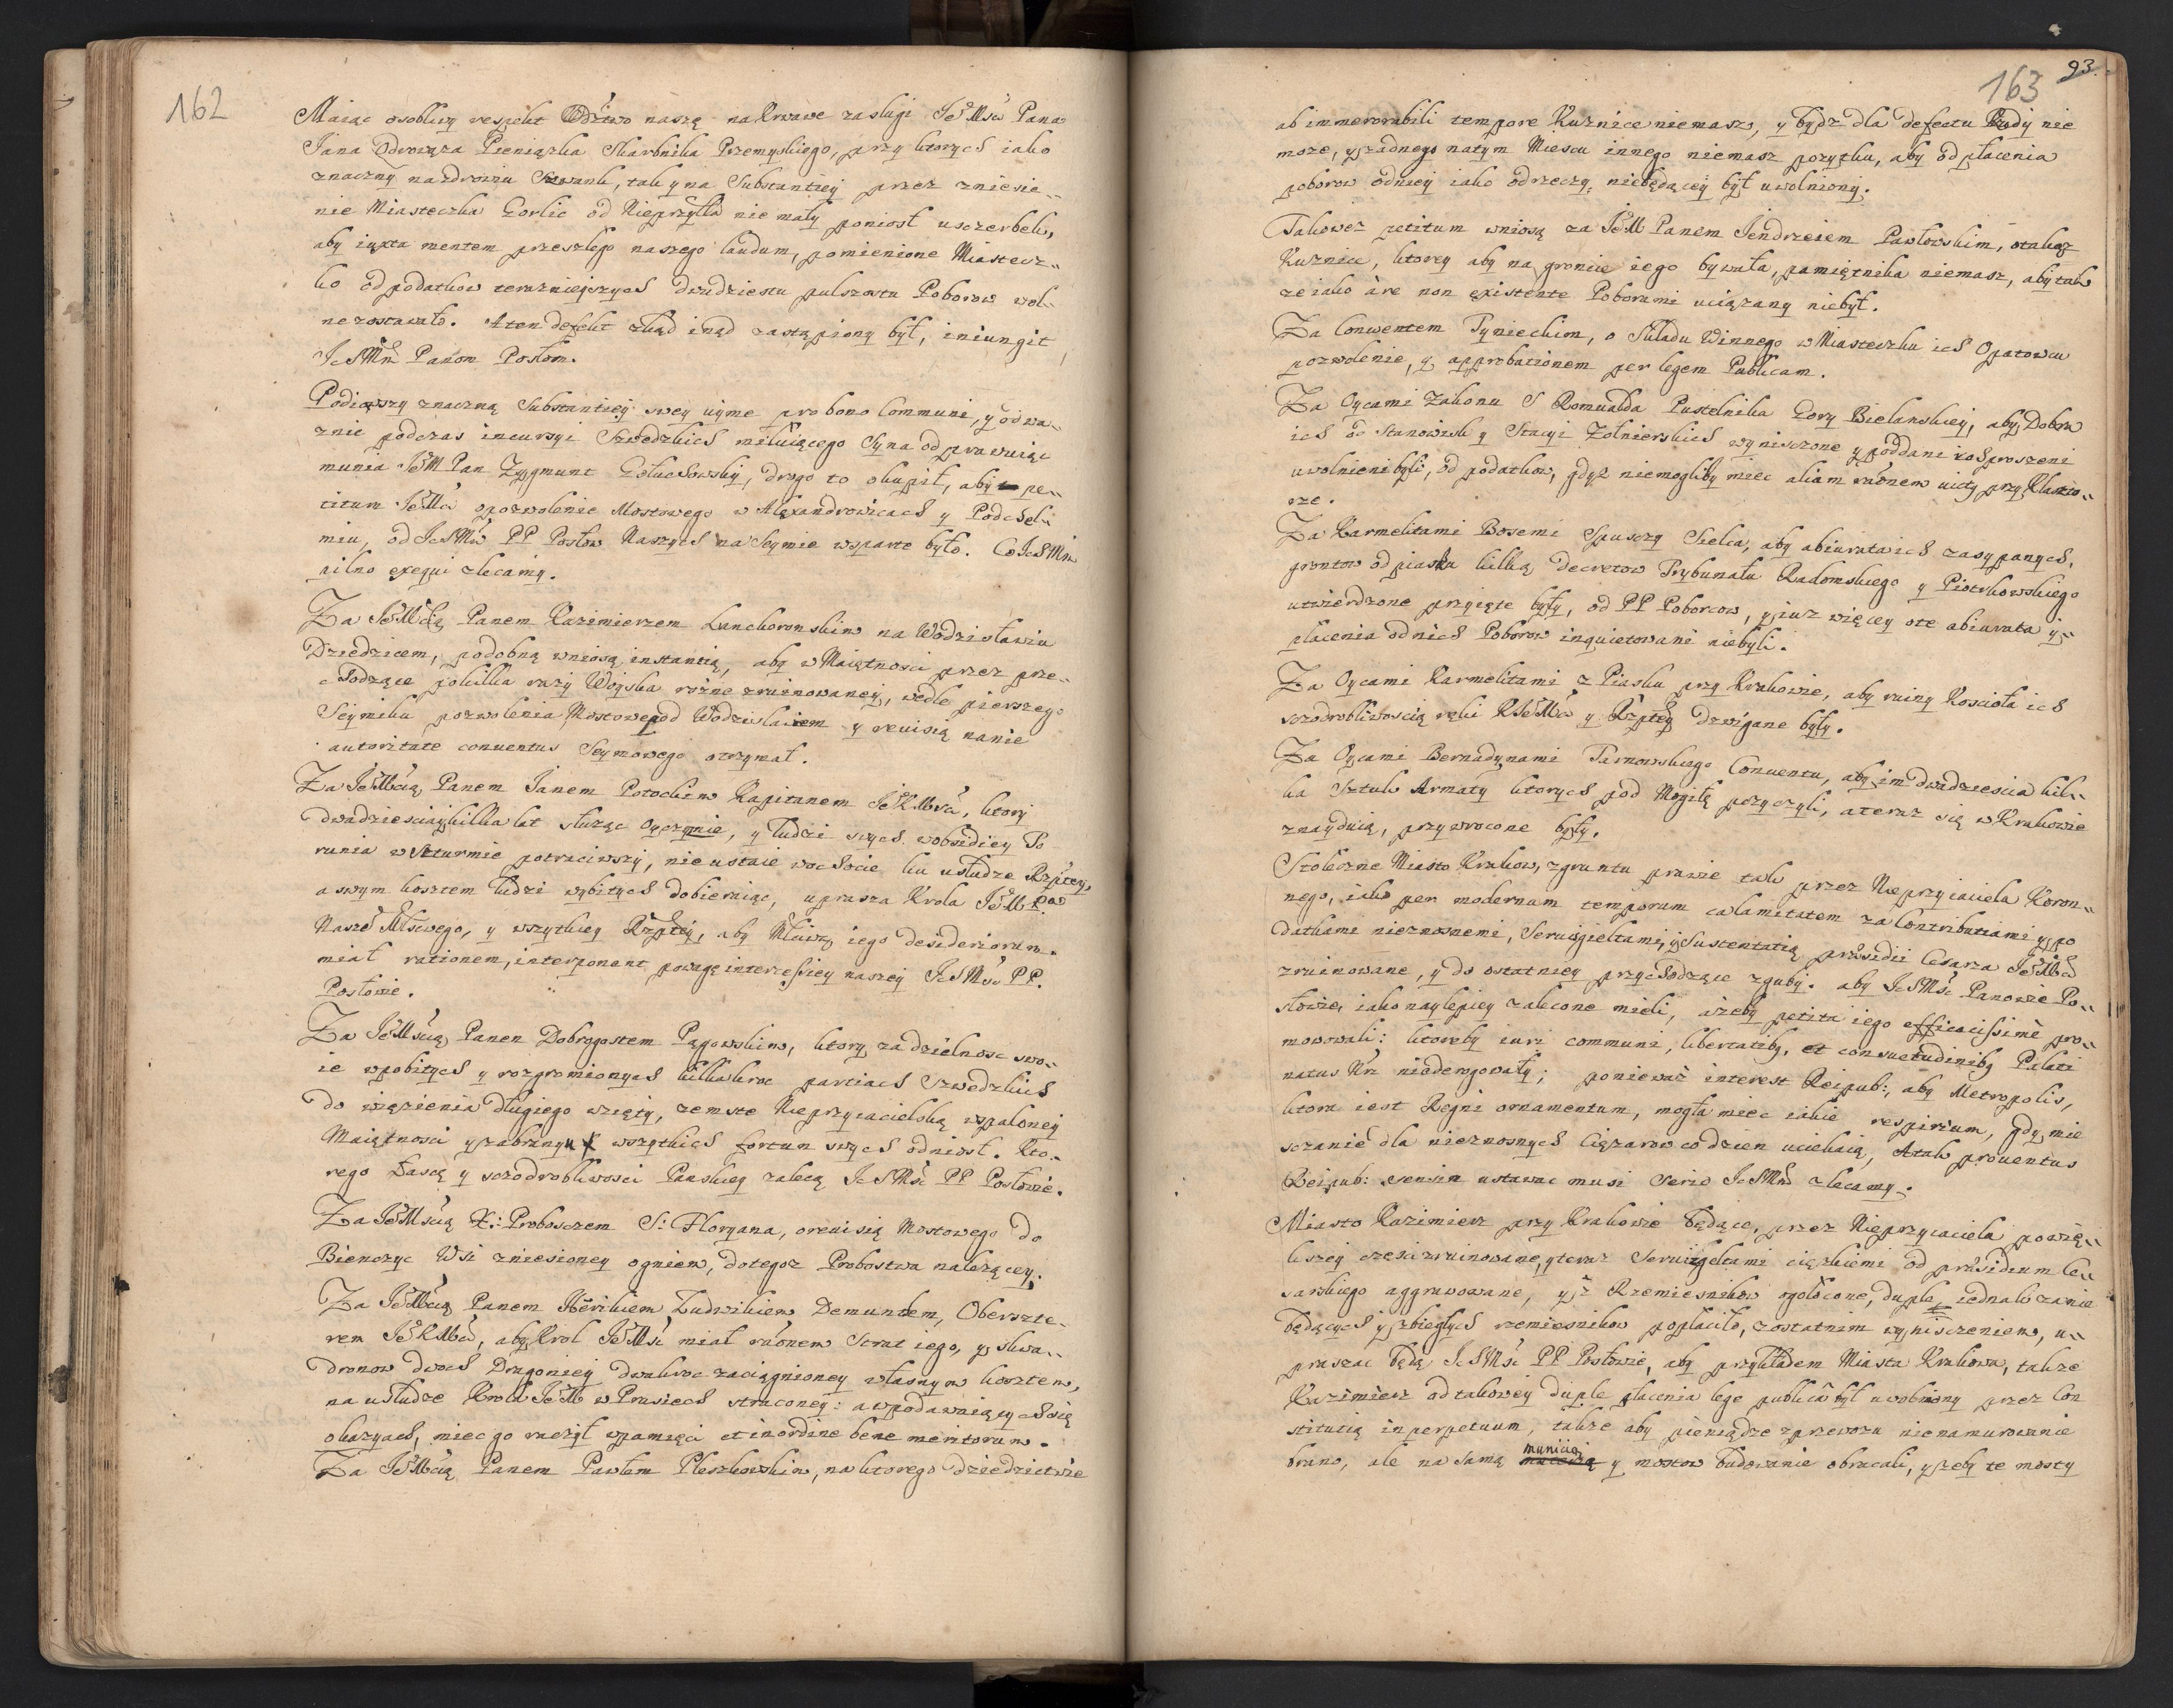 162
Maiąc osobliwy respekt Wdztwo naszę na krwawe zasługi JeMści Pana
Jana Odrowąza Pieniązka Skarbnika Przemyskiego, przy ktorych iako
znaczny na zdrowiu szwank, tak y na Substantiey przez zniesie„
nie Miasteczka Gorlic od Nieprzyła nie mały poniosł uszczerbek,
aby iuxta mentem przeszłego naszego laudum, pomienione Miastecz„
ko od podatkow teraznieyszych dwudziestu pułszosta Poborow wol„
ne zostawało. A ten defekt zkąd inąd zastąpiony był, iniungit
IchMM Panom Posłom.
Podiąwszy znaczną Substantiey swey uyme pro bono Communi, y odwa„
znie podczas incursyi Szwedzkich miłuiącego Syna od prawuiąc
munia JeM Pan Zygmunt Gołuchowsky, drogo to okupił, aby pe„
titum JeMci o pozwolenie Mostowego w Alexandrowicach y Podchel„
miu, od IchMw PP Posłow Naszych na Seymie wsparte było. Co IchMm
pilno exequi zlecamy.
Za JeMcią Panem Kazimierzem Lanckoronskim na Wodzisławiu
Dziedzicem, podobną wniosą instantią, aby w Maiętnosci przez prze„
chodzące pokilka razy Woyska rozne zruinowaney, wedle pierwszego
Seymiku pozwolenia Mostowe pod Wodzisławiem y reuisią nanie
autoritate conuentus Seymowego otrzymał.
Za JeMcią Panem Janem Potockim Kapitanem JeKMści, ktory
dwadziescia y kilka lat słuząc Oyczyznie, y ludzi swych w obsidiey To
runia w szturmie potraciwszy, nie ustaie w ochocie ku usłudze Rzptey,
a swym kosztem ludzi wybitych dobieraiąc, uprasza Krola JeM Pa
Nasze Mściwego, y wszytkiey Rzptey, aby Mściwą iego desideriorum
miał rationem, interponent powagę intercessiey naszey IchMść PP.
Posłowie.
Za JeMścią Panem Dobrogostem Pągowskim, ktory za dzielnosc swo„
ie w pobitych y rozgromionych kilkakroc partiach Szwedzkich
do więzienia długiego wzięty, zemste Nieprzyiacielską w spaloney
Maiętnosci y zabranych wszytkich fortun swych odniosł. Kto„
rego Łascę y sczodrobliwosci Panskiey zalecą IchMść PP Posłowie.
Za JeMścią X: Proboszczem S: Floryana, o reuisią Mostowego do
Bienczyc Wsi zniesioney ogniem, do tegoz Probostwa nalezącey.
Za JeMcią Panem Henrikiem Ludwikiem Demuntem, Oberszte„
rem JeKMci, aby Krol JeMść miał rationem Strat iego, y skwa„
dronow dwoch Dragoniey dwakroc zaciągnioney własnym kosztem,
na usłudze Krola JeM w Prusiech straconey: a w podawaiących się
okazyach, miec go raczył w pamięci et in ordine bene meritorum.
Za JeMcią Panem Pawłem Pleszkowskim, na ktorego dziedzictwie
163 93.
ab immemorabili tempore Kuznice niemasz, y bydz dla defectu Rudy nie
moze, y zadnego na tym Miescu innego niemasz pozytku, aby od płacenia
poborow od niey iako od rzeczy niebędącey był uwolniony.
Takowez petitum wniosą za JeM Panem Jendrzeiem Pawłowskim, o takąz
Kuznice, ktorey aby na groncie iego bywała, pamiętnika niemasz, aby tak
ze iako a re non existente Poborami uciązany niebył.
Za Conwentem Tynieckim, o Składu Winnego w Miasteczku ich Opatowcu
pozwolenie, y approbationem per legem Publicam.
Za Oycami Zakonu S Romualda Pustelnika Gory Bielanskiey, aby Dobra
ich od Stanowisk y Stacyi Zołnierskich wyniszczone y poddani rosproszeni
uwolnieni byli, od podatkow, gdyz niemogliby miec aliam rationem uictus przy Klaszto„
rze.
Za Karmelitami Bosemi Spuszczy Sielca, aby abiurata ich zasypanych
grontow od piasku kilką decretow Trybunału Radomskiego y Piotrkowskiego
utwierdzone przyięte były, od PP Poborcow, y iuz więcey o te abiurata y„
płacenia od nich Poborow inquietowani niebyli.
Za Oycami Karmelitami z Piasku przy Krakowie, aby ruiny Kosciola ich
sczodrobliwoscią ręki KJeMści y Rzptey dzwigane były.
Za Oycami Bernadynami Tarnowskiego Conuentu, aby im dwadziescia kil„
ka Sztuk Armaty ktorych pod Mogiłą pozyczyli, a teraz się w Krakowie
znayduią, przywrocone były.
Stołeczne Miasto Krakow, z gruntu prawie tak przez Nieprzyiaciela Koron„
nego, iako per modernam temporum calamitatem za Contributiami y po
datkami nieznosnemi, Seruisgieltami, y Sustentatią praesidii Cesarza JeMci
zruinowane, y do ostatniey przychodzące zguby. aby IchMść Panowie Po„
słowie, iako naylepiey zalecone mieli, azeby petita iego efficacissime pro„
mowowali: ktoreby iuri communi, libertatibq, et consuetudinibq Palati
natus Kr niederogowały; poniewaz interest Reipub: aby Metropolis,
ktora iest Regni ornamentum, mogła miec iakie respirium, gdy mie
sczanie dla nieznosnych Cięzarow co dzien uciekaią, A tak prouentus
Reipub: sensim ustawac musi serio IchMM zlecamy.
Miasto Kazimierz przy Krakowie będące, przez Nieprzyiaciela powię„
kszey części zruinowane, y teraz Seruizgeltami cięzkiemi od praesidium Ce„
sarskiego aggrawowane, y z Rzemiesnikow ogołocone, duple iednak za nie
będących y zbiegłych rzemiesnikow popłaciło, z ostatnim wyniszczeniem, u„
praszac będą IchMść PP Posłowie, aby przykładem Miasta Krakowa, takze
Kazimierz od takowey duple płacenia lege publica był uwolniony przez Con
stitutią in perpetuum, takze aby pieniądze z przewozu nie na murowanie
brano, ale na samą municią y mostow budowanie obracali, y zeby te mosty